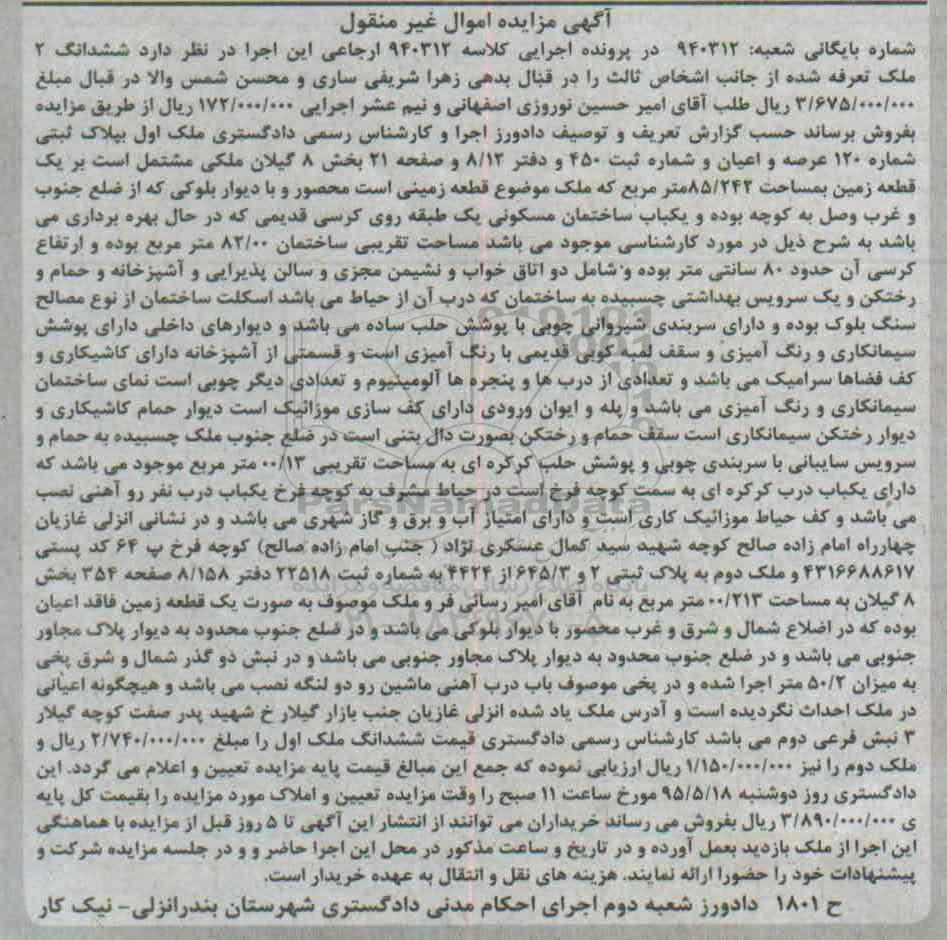 آگهی مزایده اموال غیر منقول
شماره بایگانی شعبه: ۹۴۰۳۱۲ در پرونده اجرایی کلاسه ۹۴۰۳۱۲ ارجاعی این اجرا در نظر دارد ششدانگ ۲
ملک تعرفه شده از جانب اشخاص ثالث را در قبال بدهی زهرا شریفی ساری و محسن شمس والا در قبال مبلغ
۳/۶۷۵/۰۰۰/۰۰۰ ریال طلب آقای امیر حسین نوروزی اصفهانی و نیم عشر اجرایی ۱۷۲/۰۰۰/۰۰۰ ریال از طریق مزایده
بفروش برساند حسب گزارش تعریف و توصیف دادورز اجرا و کارشناس رسمی دادگستری ملک اول بپلاک ثبتی
شماره ۱۲۰ عرصه و اعیان و شماره ثبت ۴۵۰ و دفتر ۸/۱۲ و صفحه ۲۱ بخش ۸ گیلان ملکی مشتمل است بر یک
قطعه زمین بمساحت ۸۵/۲۴۲متر مربع که ملک موضوع قطعه زمینی است محصور و با دیوار بلوکی که از ضلع جنوب
و غرب وصل به کوچه بوده و یکباب ساختمان مسکونی یک طبقه روی کرسی قدیمی که در حال بهره برداری می
باشد به شرح ذیل در مورد کارشناسی موجود می باشد مساحت تقریبی ساختمان ۸۲/۰۰ متر مربع بوده و ارتفاع
کرسی آن حدود ۸۰ سانتی متر بوده و شامل دو اتاق خواب و نشیمن مجزی و سالن پذیرایی و آشپزخانه و حمام و
رختکن و یک سرویس بهداشتی چسبیده به ساختمان که درب آن از حیاط می باشد اسکلت ساختمان از نوع مصالح
سنگ بلوک بوده و دارای سربندی شیروانی چوبی با پوشش حلب ساده می باشد و دیوارهای داخلی دارای پوشش
سیمانکاری و رنگ آمیزی و سقف لمبه کوبی قدیمی با رنگ آمیزی است و قسمتی از آشپزخانه دارای کاشیکاری و
کف فضاها سرامیک می باشد و تعدادی از درب ها و پنجره ها آلومینیوم و تعدادی دیگر چوبی است نمای ساختمان
سیمانکاری و رنگ آمیزی می باشد و پله و ایوان ورودی دارای کف سازی موزائیک است دیوار حمام کاشیکاری و
دیوار رختکن سیمانکاری است سقف حمام و رختکن بصورت دال بتنی است در ضلع جنوب ملک چسبیده به حمام و
سرویس سایبانی با سربندی چوبی و پوشش حلب کرکره ای به مساحت تقریبی ۰۰/۱۳ متر مربع موجود می باشد که
دارای یکباب درب کرکره ای به سمت کوچه فرخ است در حیاط مشرف به کوچه فرخ یکباب درب نفر رو آهنی نصب
می باشد و کف حیاط موزائیک کاری است و دارای امتیاز آب و برق و گاز شهری می باشد و در نشانی انزلی غازیان
چهارراه امام زاده صالح کوچه شهید سید کمال عسکری نژاد ( جنب امام زاده صالح) کوچه فرخ پ ۶۴ کد پستی
۴۳۱۶۶۸۸۶۱۷ و ملک دوم به پلاک ثبتی ۲ و ۶۴۵/۳ از ۴۴۲۴ به شماره ثبت ۲۲۵۱۸ دفتر ۸/۱۵۸ صفحه ۳۵۴ بخش
۸ گیلان به مساحت ۰۰/۲۱۳ متر مربع به نام آقای امیر رسائی فر و ملک موصوف به صورت یک قطعه زمین فاقد اعیان
بوده که در اضلاع شمال و شرق و غرب محصور با دیوار بلوکی می باشد و در ضلع جنوب محدود به دیوار پلاک مجاور
جنوبی می باشد و در ضلع جنوب محدود به دیوار پلاک مجاور جنوبی می باشد و در نبش دو گذر شمال و شرق پخی
به میزان ۵۰/۲ متر اجرا شده و در پخی موصوف باب درب آهنی ماشین رو دو لنگه نصب می باشد و هیچگونه اعیانی
در ملک احداث نگردیده است و آدرس ملک یاد شده انزلی غازیان جنب بازار گیلار خ شهید پدر صفت کوچه گیلار
۳ نبش فرعی دوم می باشد کارشناس رسمی دادگستری قیمت ششدانگ ملک اول را مبلغ ۲/۷۴۰/۰۰۰/۰۰۰ ریال و
ملک دوم را نیز ۱/۱۵۰/۰۰۰/۰۰۰ ریال ارزیابی نموده که جمع این مبالغ قیمت پایه مزایده تعیین و اعلام می گردد. این
دادگستری روز دوشنبه ۹۵/۵/۱۸ مورخ ساعت ۱۱ صبح را وقت مزایده تعیین و املاک مورد مزایده را بقیمت کل پایه
ی ۳/۸۹۰/۰۰۰/۰۰۰ ریال بفروش می رساند خریداران می توانند از انتشار این آگهی تا ۵ روز قبل از مزایده با هماهنگی
این اجرا از ملک بازدید بعمل آورده و در تاریخ و ساعت مذکور در محل این اجرا حاضر و و در جلسه مزایده شرکت و
پیشنهادات خود را حضورا ارائه نمایند. هزینه های نقل و انتقال به عهده خریدار است.
ح ۱۸۰۱ دادورز شعبه دوم اجرای احکام مدنی دادگستری شهرستان بندرانزلی- نیک کار
ParsNamadData